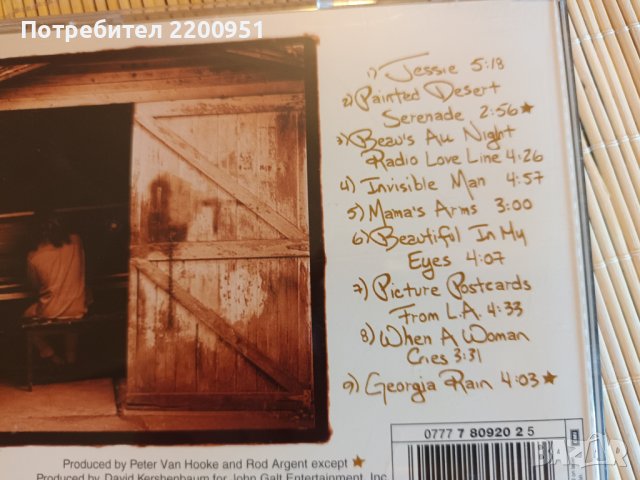 Потребител 2200951
1) Jessie 5:18
2) Painted Desert
Serenade 2:56★
3) Beau's All Night
Radio Love Line 4:26
4) Invisible Man 4:57
5) Mama's Arms 3:00
6) Beautiful In My
Eyes 4:07
7) Picture Postcards
From L.A. 4:33
8) When A Woman
Cries 3:31
9) Georgia Rain 4:03★
0777 7 80920 2 5
Produced by Peter Van Hooke and Rod Argent except ★
Produced by David Kershenbaum for John Galt Entertainment, Inc.
BAZAR